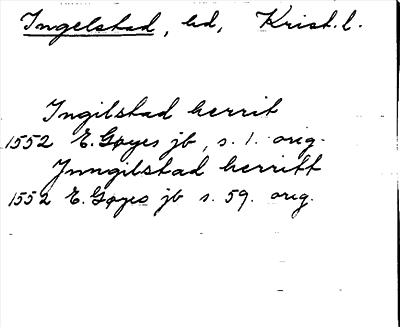 Ingelstad, hd, Krist. l.
Ingilstad herrit
1552 E. Gøyes jb, s. 1. orig.
Jnngilstad herritt
1552 E. Gøyes jb s. 59. orig.